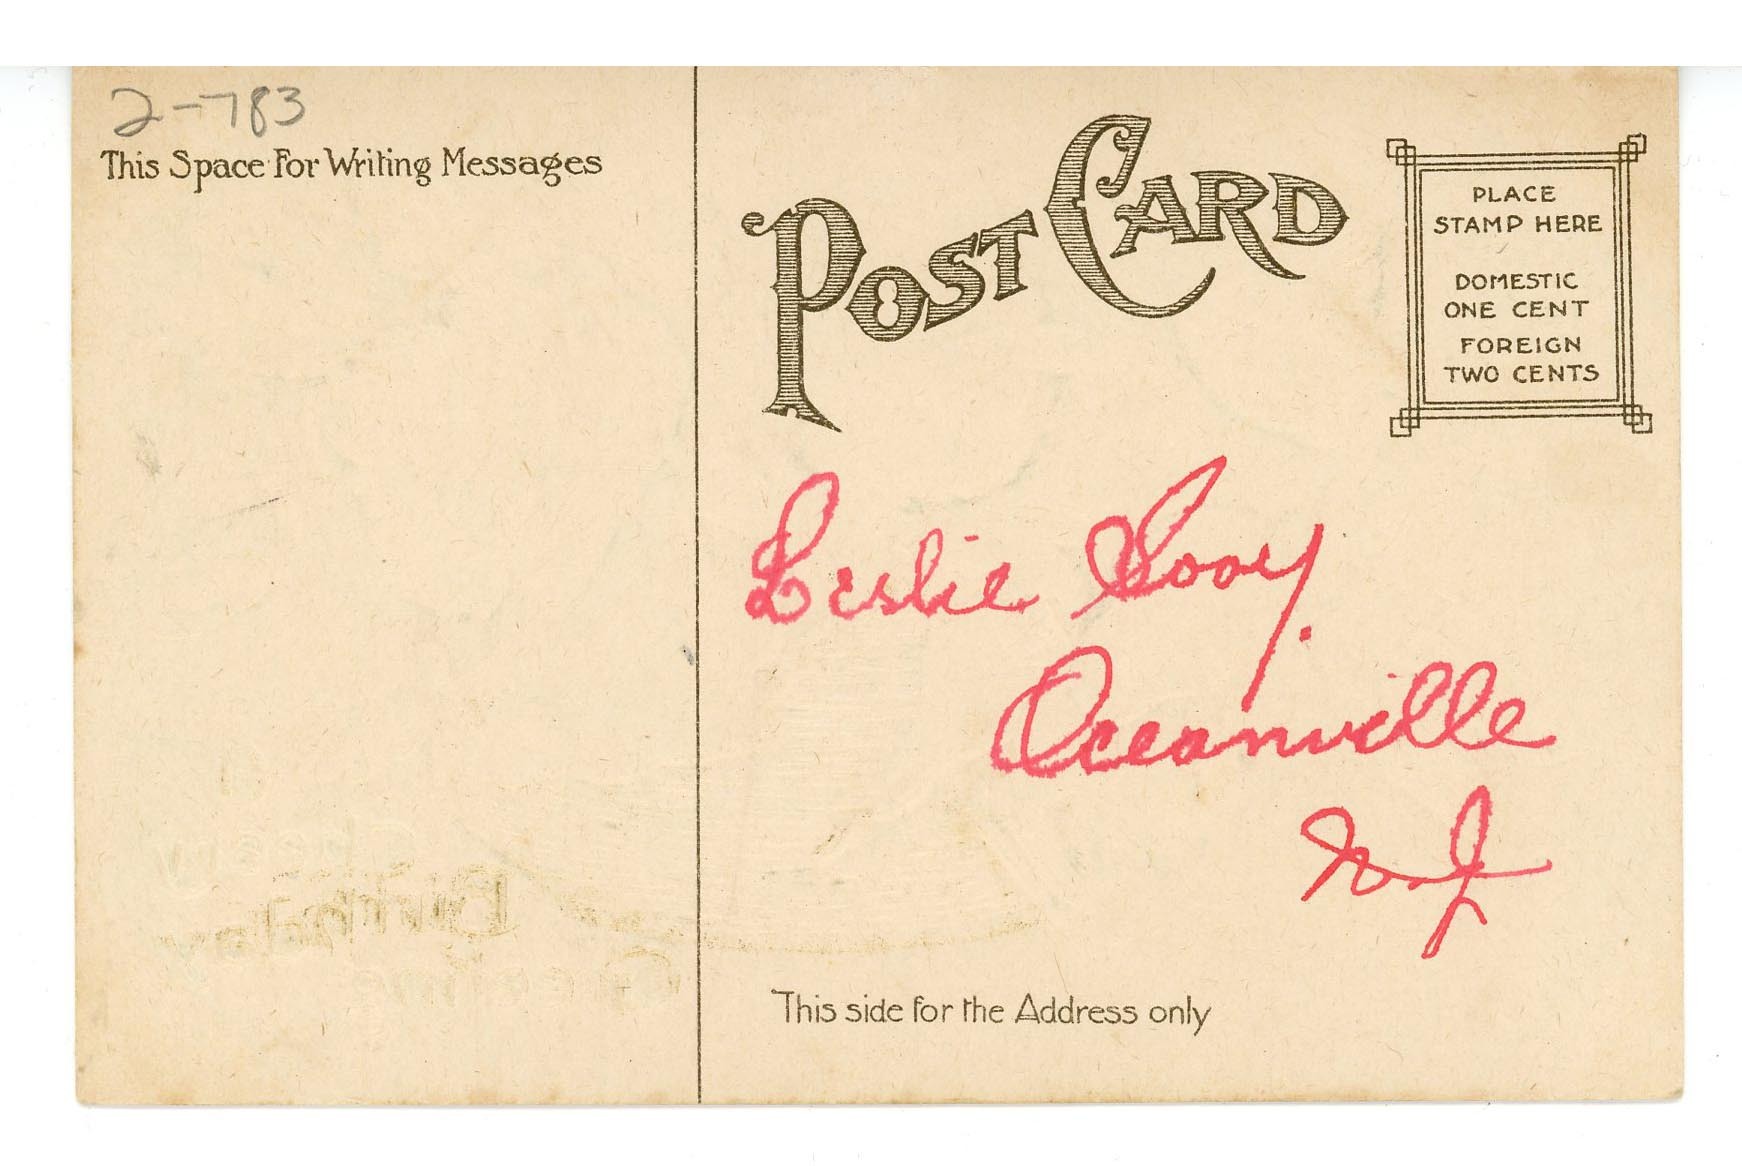 2-783
This Space For Writing Messages
POST CARD
PLACE
STAMP HERE
DOMESTIC
ONE CENT
FOREIGN
TWO CENTS
Leslie Sooy.
Oceanville
N.J
This side for the Address only